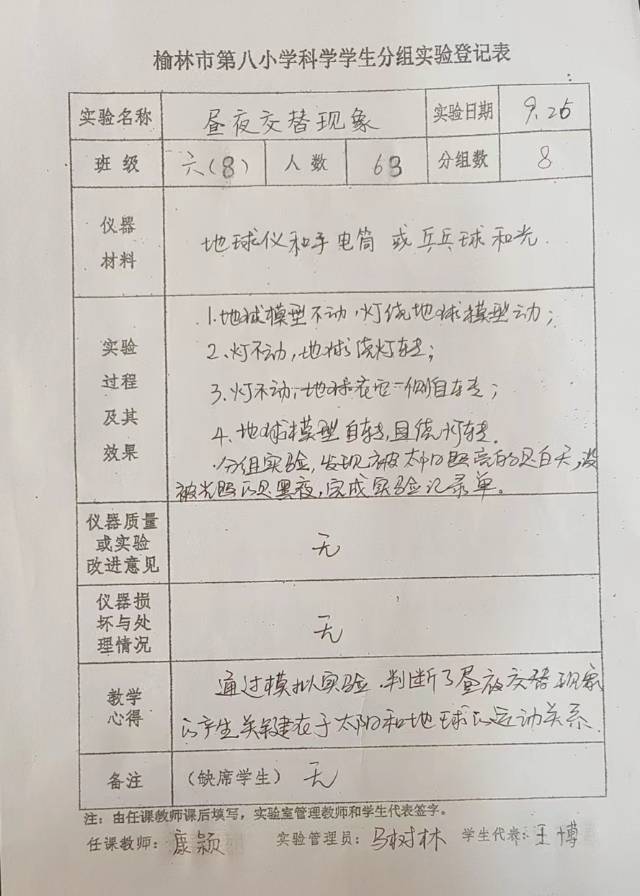 榆林市第八小学科学学生分组实验登记表
实验名称 昼夜交替现象 实验日期 9.26
班 级 六(8) 人 数 63 分组数 8
仪器
材料
地球仪和手电筒 或乒乓球和光.
实验
过程
及其
效果
1.地球模型不动,灯绕地球模型动;
2.灯不动,地球绕灯转;
3.灯不动,地球在它一侧自转;
4.地球模型自转,且绕灯转.
分组实验,发现被太阳照亮的是白天,没
被光照的是黑夜,完成实验记录单。
仪器质量
或实验
改进意见
无
仪器损
坏与处
理情况
无
教学
心得
通过模拟实验,判断了昼夜交替现象
的产生关键在于太阳和地球的运动关系.
备注 (缺席学生) 无
注:由任课教师课后填写,实验室管理教师和学生代表签字。
任课教师:康颖 实验管理员:马树林 学生代表:王博